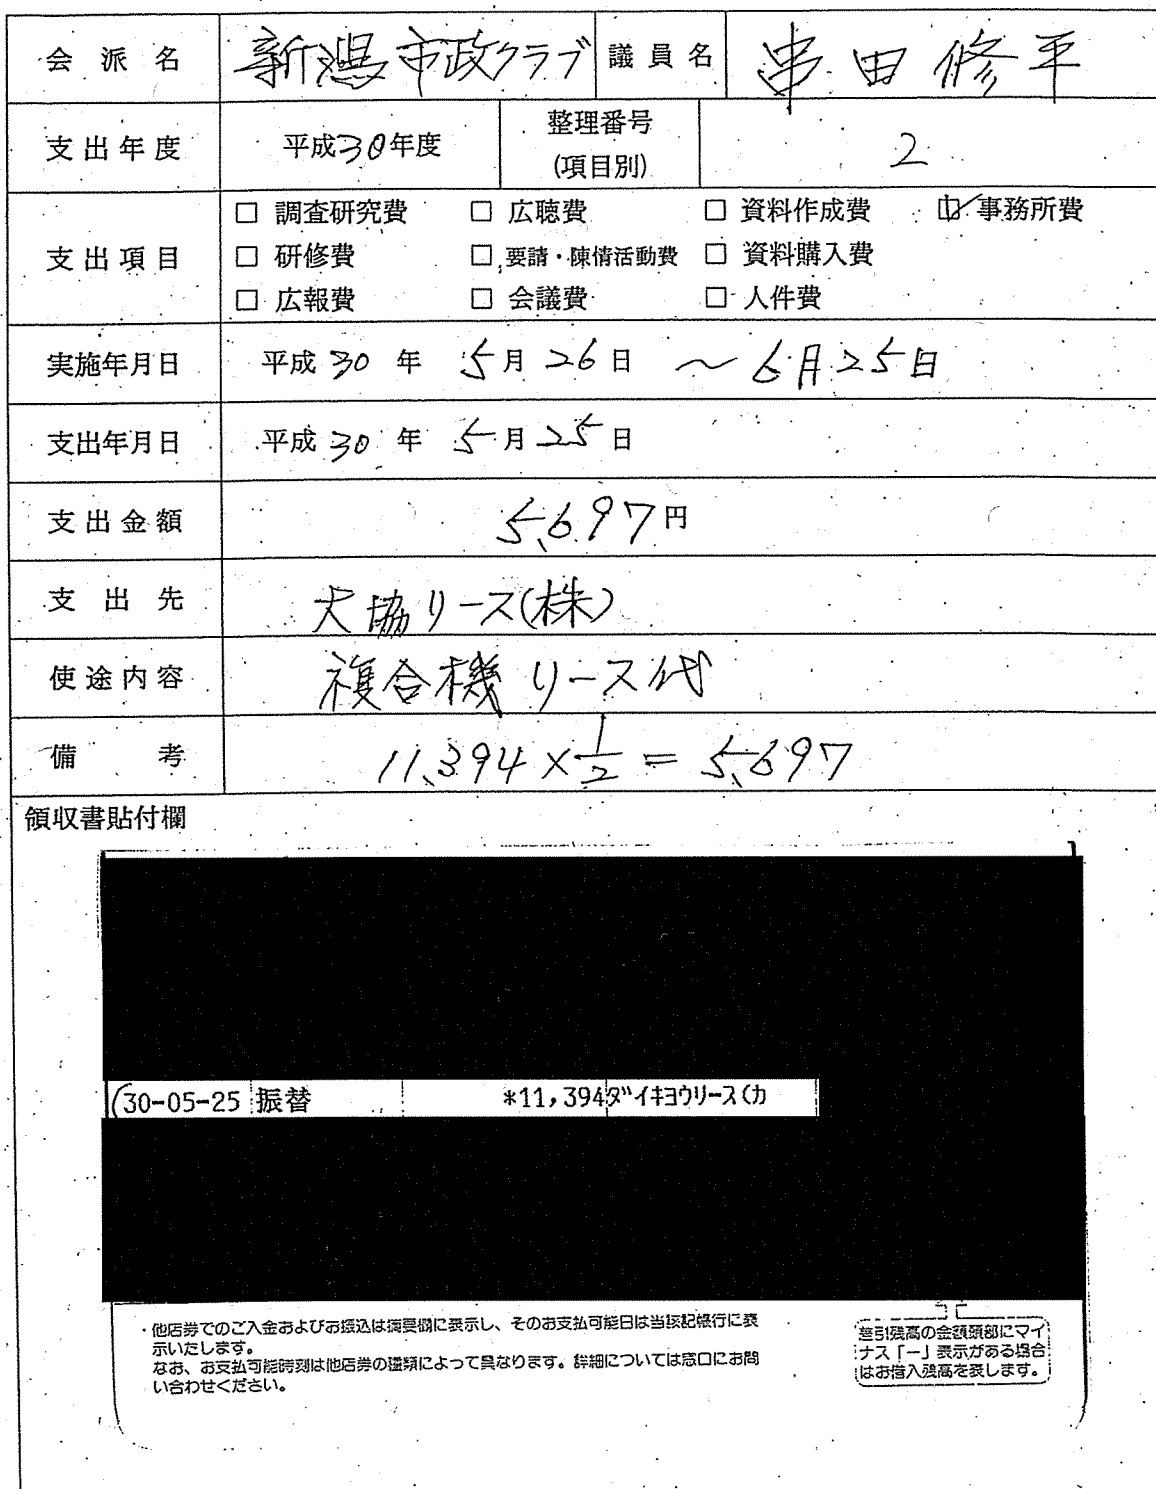 会派名 新潟市政クラブ 議員名 串田修平
支出年度 平成30年度 整理番号(項目別) 2
支出項目
□ 調査研究費 □ 広聴費 □ 資料作成費 ☑ 事務所費
□ 研修費 □ 要請・陳情活動費 □ 資料購入費
□ 広報費 □ 会議費 □ 人件費
実施年月日 平成30年 5月26日 ~ 6月25日
支出年月日 平成30年 5月25日
支出金額 5,697円
支出先 大協リース(株)
使途内容 複合機リース代
備考 11,394×1/2=5,697
領収書貼付欄
30-05-25 振替 *11,394 ダイキヨウリース(カ
・他店券でのご入金およびお振込は摘要欄に表示し、そのお支払可能日は当該記帳行に表
示いたします。
なお、お支払可能時刻は他店券の種類によって異なります。詳細については窓口にお問
い合わせください。
差引残高の金額頭部にマイ
ナス「-」表示がある場合
はお借入残高を表します。